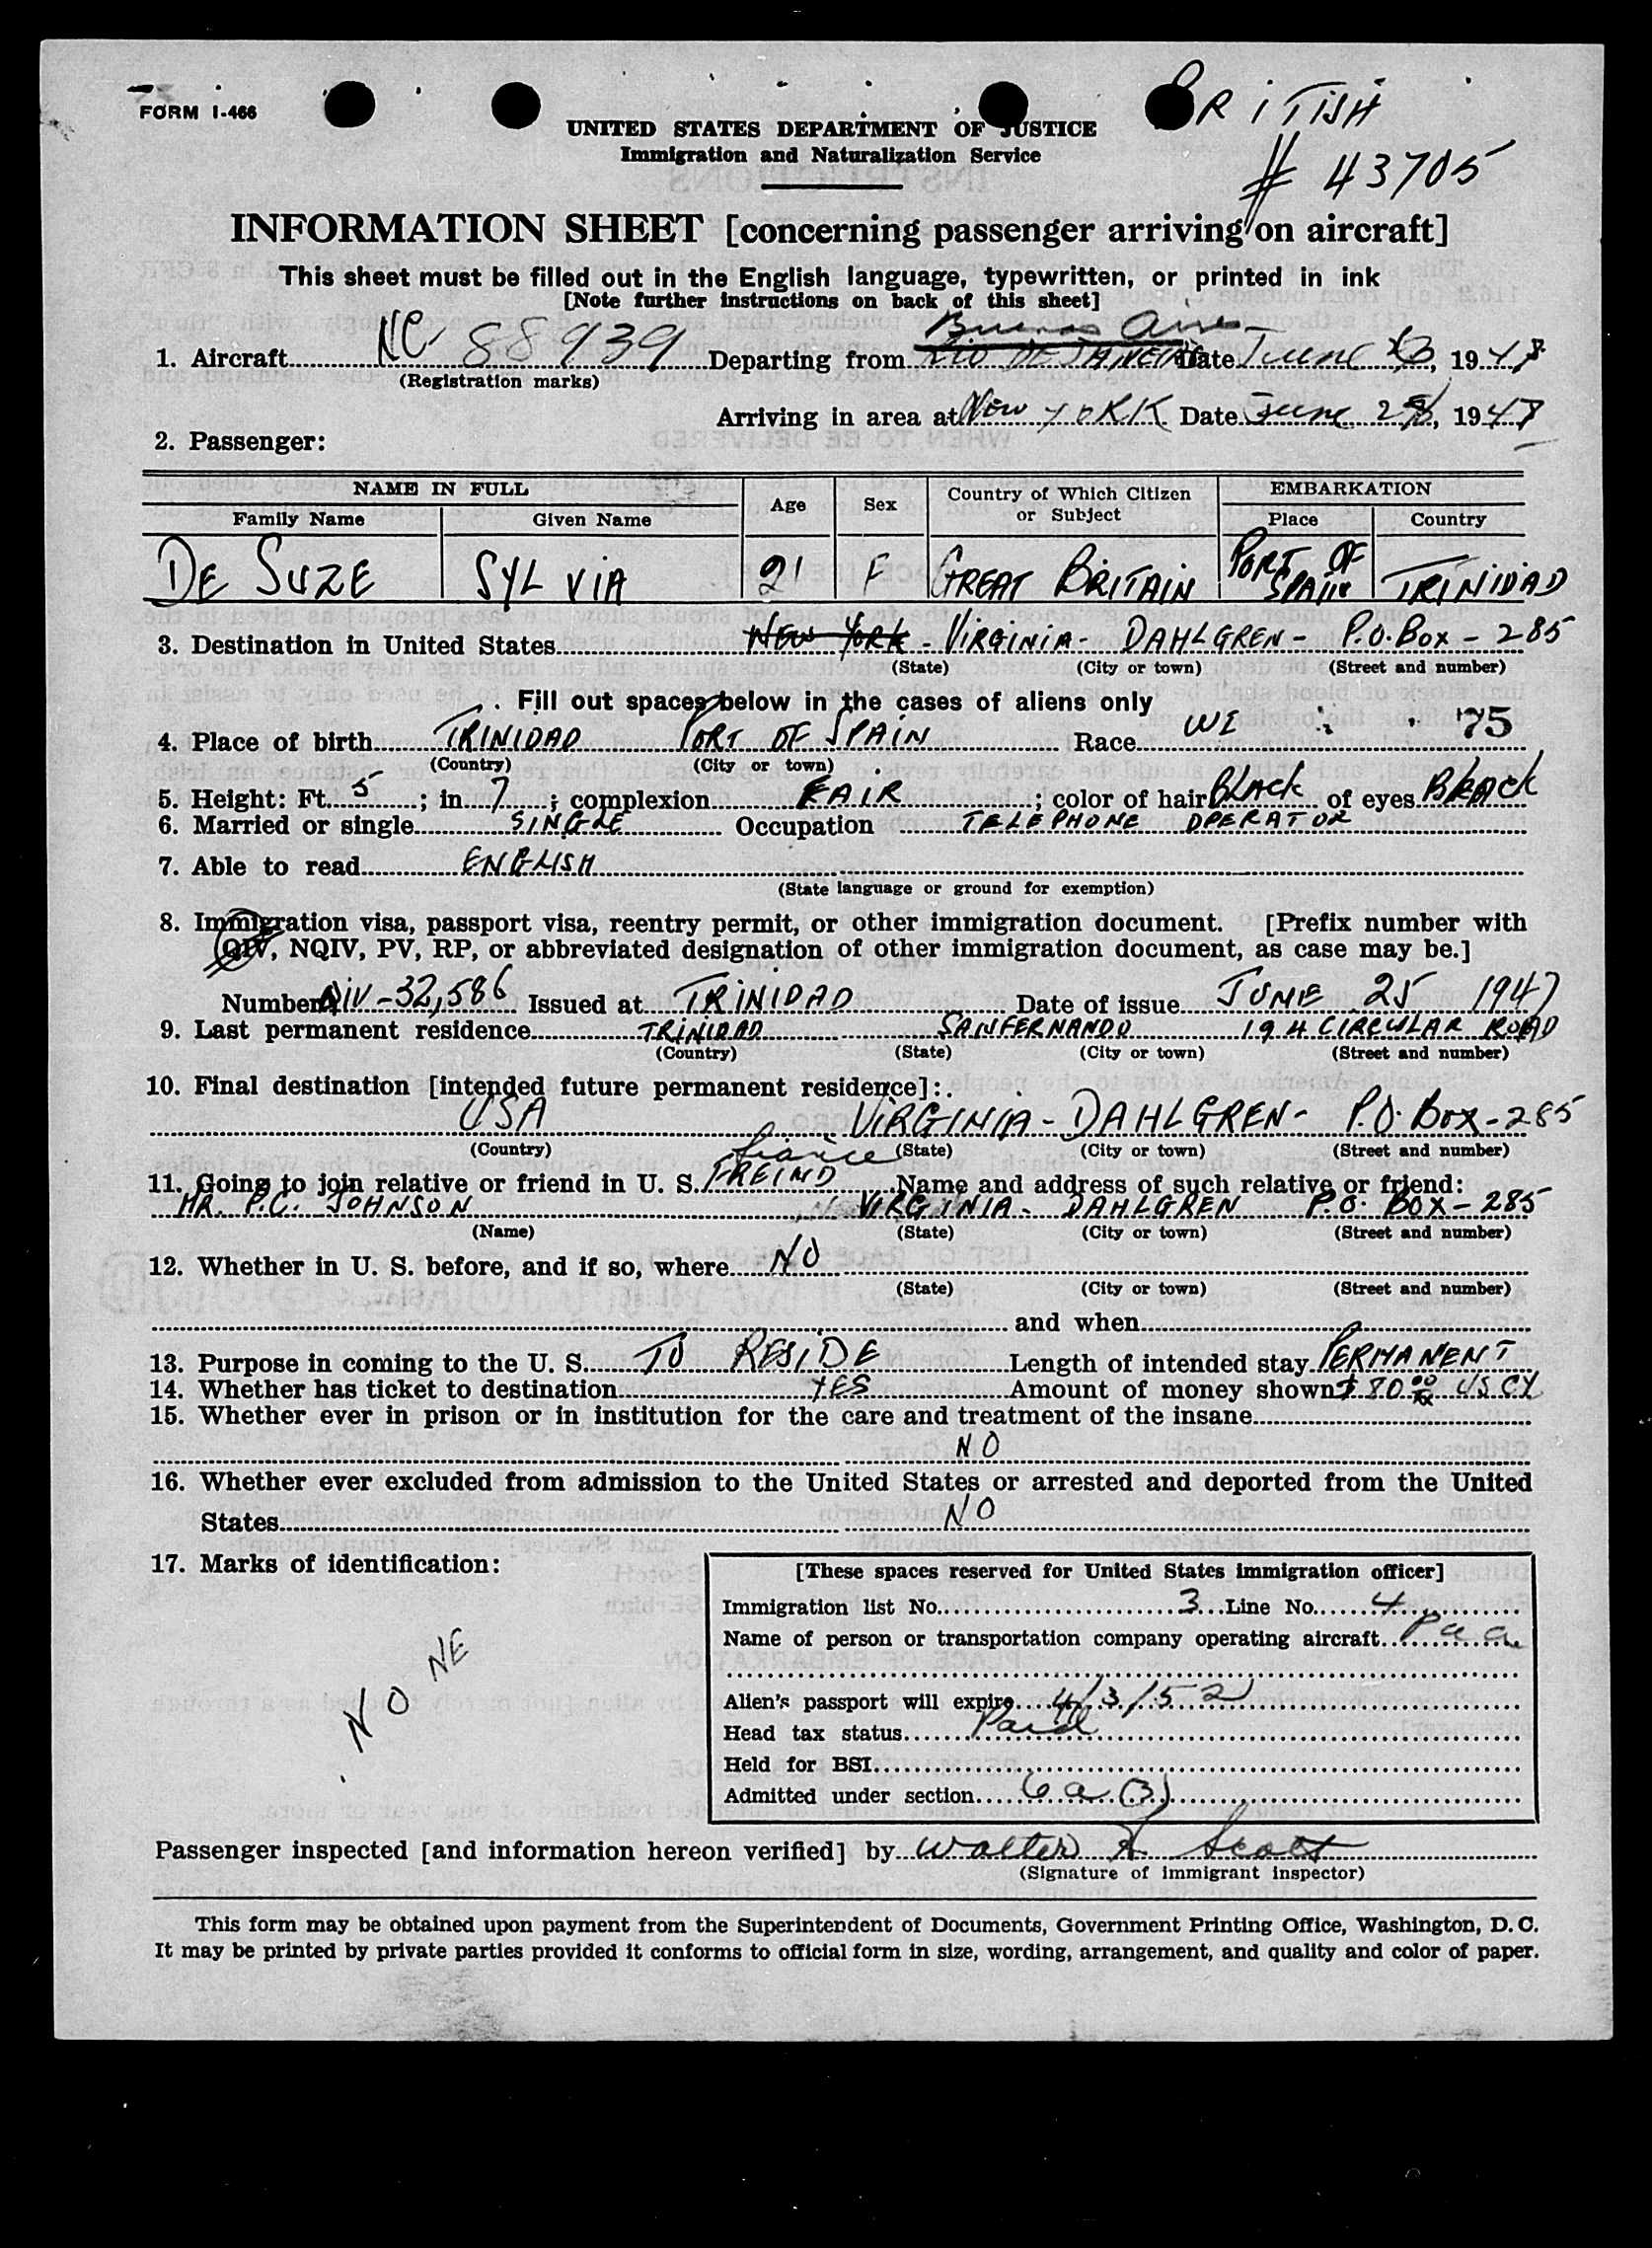 FORM I-466
BRITISH
# 43705
UNITED STATES DEPARTMENT OF JUSTICE
Immigration and Naturalization Service
INFORMATION SHEET [concerning passenger arriving on aircraft]
This sheet must be filled out in the English language, typewritten, or printed in ink
[Note further instructions on back of this sheet]
Buenos Aires
1. Aircraft NC 88939 Departing from RIO DE JANEIRO Date June, 1948
(Registration marks)
Arriving in area at New YORK Date June 28, 1948
2. Passenger:
NAME IN FULL Age Sex Country of Which Citizen or Subject EMBARKATION
Family Name Given Name Place Country
DE SUZE SYLVIA 21 F GREAT BRITAIN PORT OF SPAIN TRINIDAD
3. Destination in United States NEW YORK - VIRGINIA - DAHLGREN - P.O. BOX - 285
(State) (City or town) (Street and number)
Fill out spaces below in the cases of aliens only
4. Place of birth TRINIDAD PORT OF SPAIN Race WI 75
(Country) (City or town)
5. Height: Ft. 5; in. 7; complexion FAIR; color of hair BLACK of eyes BLACK
6. Married or single SINGLE Occupation TELEPHONE OPERATOR
7. Able to read ENGLISH
(State language or ground for exemption)
8. Immigration visa, passport visa, reentry permit, or other immigration document. [Prefix number with
QIV, NQIV, PV, RP, or abbreviated designation of other immigration document, as case may be.]
Number QIV-32,586 Issued at TRINIDAD Date of issue JUNE 25 1947
9. Last permanent residence TRINIDAD SANFERNANDO 194 CIRCULAR ROAD
(Country) (State) (City or town) (Street and number)
10. Final destination [intended future permanent residence]:
USA VIRGINIA - DAHLGREN - P.O. BOX - 285
(Country) (State) (City or town) (Street and number)
fiance
11. Going to join relative or friend in U. S. FREIND Name and address of such relative or friend:
MR. P.C. JOHNSON VIRGINIA - DAHLGREN P.O. BOX - 285
(Name) (State) (City or town) (Street and number)
12. Whether in U. S. before, and if so, where NO
(State) (City or town) (Street and number)
and when
13. Purpose in coming to the U. S. TO RESIDE Length of intended stay PERMANENT
14. Whether has ticket to destination YES Amount of money shown $ 80.00 US CY
15. Whether ever in prison or in institution for the care and treatment of the insane
NO
16. Whether ever excluded from admission to the United States or arrested and deported from the United
States NO
17. Marks of identification:
NONE
[These spaces reserved for United States immigration officer]
Immigration list No. 3 Line No. 4
Name of person or transportation company operating aircraft P a a
Alien's passport will expire 4/3/52
Head tax status Paid
Held for BSI
Admitted under section 6 a (3)
Passenger inspected [and information hereon verified] by Walter A Scott
(Signature of immigrant inspector)
This form may be obtained upon payment from the Superintendent of Documents, Government Printing Office, Washington, D. C.
It may be printed by private parties provided it conforms to official form in size, wording, arrangement, and quality and color of paper.